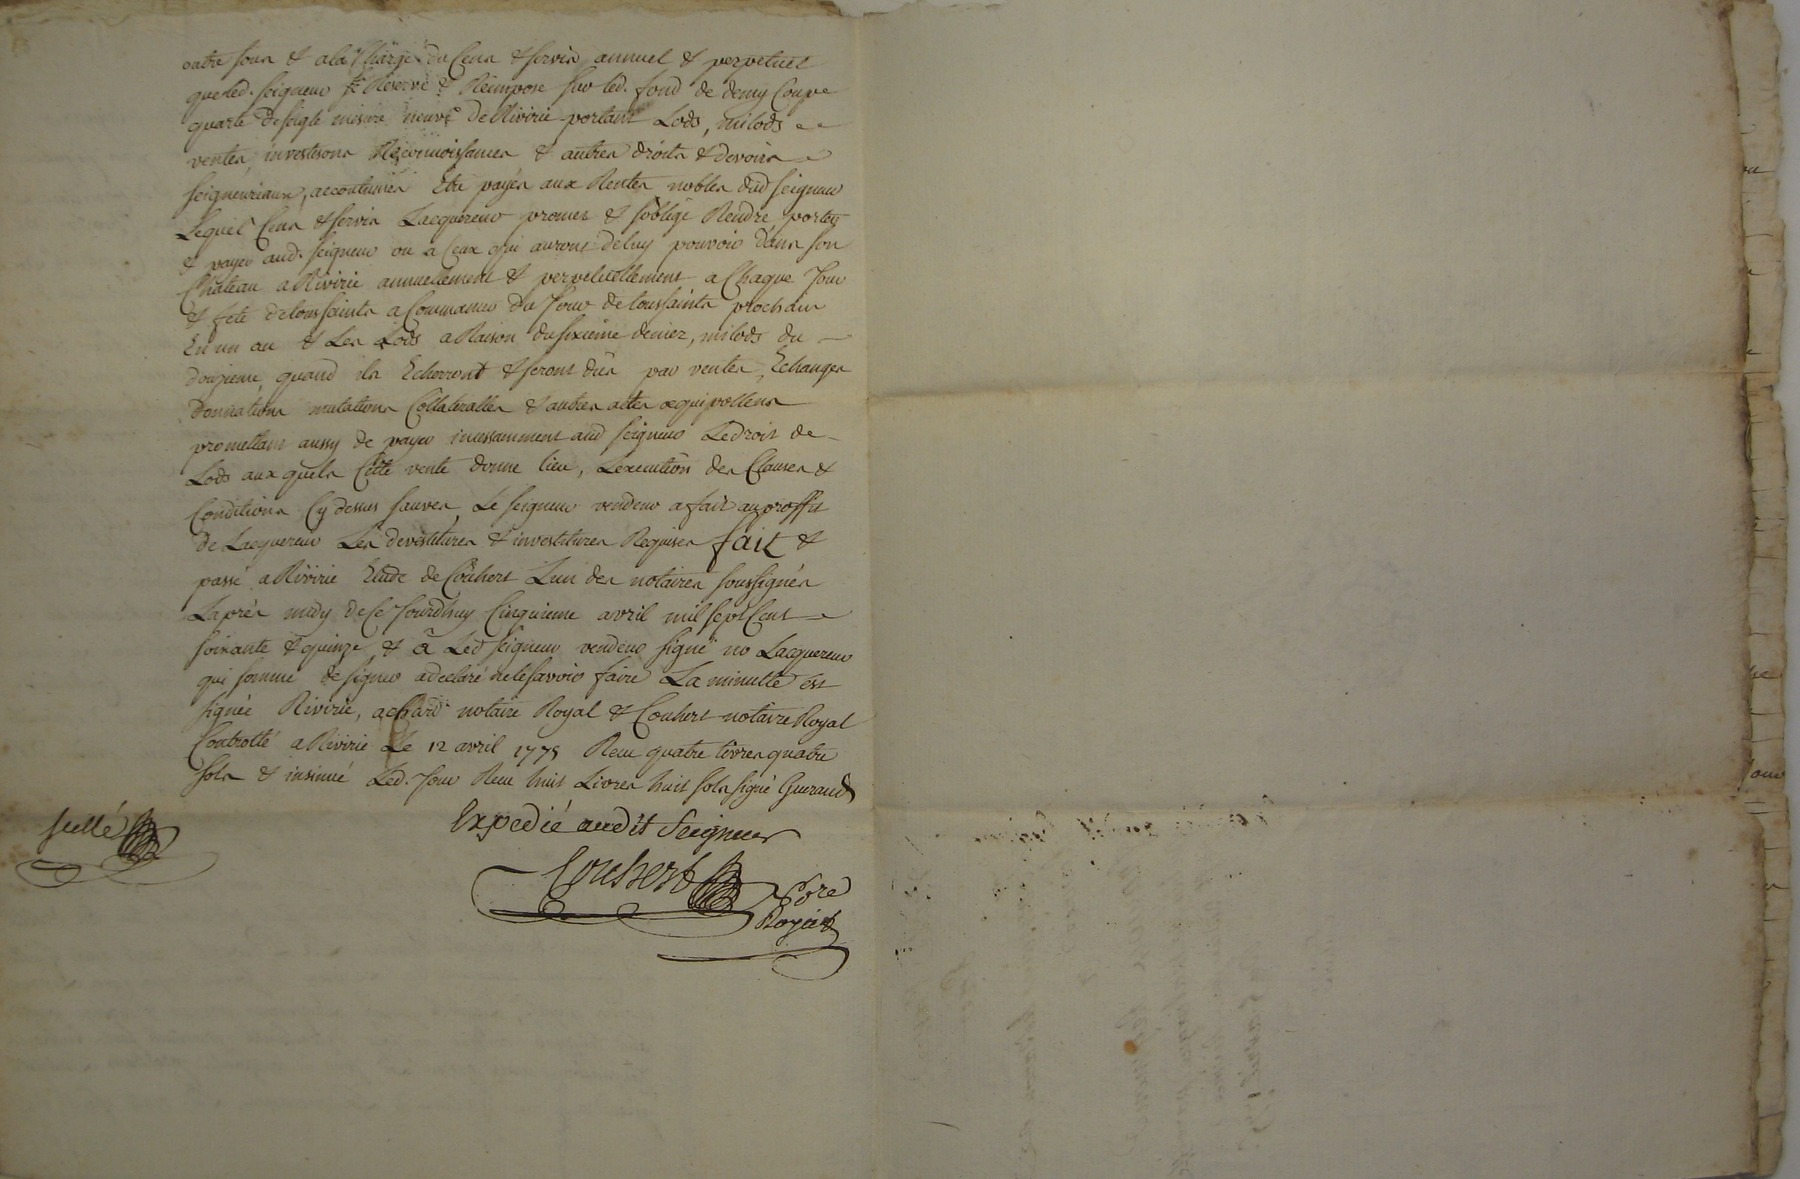 outre sous & ala Charge du Cens & servis annuel & perpetuel
queled. seigneur se Réserve & Reimpose sur led. fond de demy Coupe
quarte de seigle mesure neuve de Rivirie portant Lods, milods
ventes, investisons Reconnoissances & autres droits & devoirs
seigneuriaux, accoutumés Etre payés aux Rentes nobles dud seigneur
Lequel Cens & servis Lacquereur promet & soblige Rendre porter
& payer aud. seigneur ou a Ceux qui auront deluy pouvoir dans son
Château a Rivirie annuellement & perpetuellement a Chaque Jour
& fete de tous saints a Commancer du Jour de toussaints prochain
En un an & Les Lods a Raison du sixieme denier, milods du
douzieme, quand ils Echerront & seront dûs par ventes, Echanges
donnations mutations Collateralles & autres actes æquipollens
promettant aussy de payer incessamment aud seigneur Ledroit de
Lods aux quels Cette vente donne lieu, Lexecution des Clauses &
Conditions Cy dessus sauves, Le seigneur vendeur a fait au proffit
de Lacquereur Les devestitures & investitures Requises fait &
passé a Rivirie Etude de Couhert Lun des notaires soussignés
Laprès midy de Ce Jourdhuy Cinquieme avril mil sept Cent
soixante & quinze & à Led seigneur vendeur signé no Lacquereur
qui sommé de signer a declaré ne le savoir faire La minutte est
signée Rivirie, achard notaire Royal & Couhert notaire Royal
Controllé a Rivirie Le 12 avril 1775 Recu quatre livres quatre
sols & insinué Led. Jour Recu huit Livres huit sols signé Guerand
scellé
Expedié audit Seigneur
Couhert
Nore
Royal